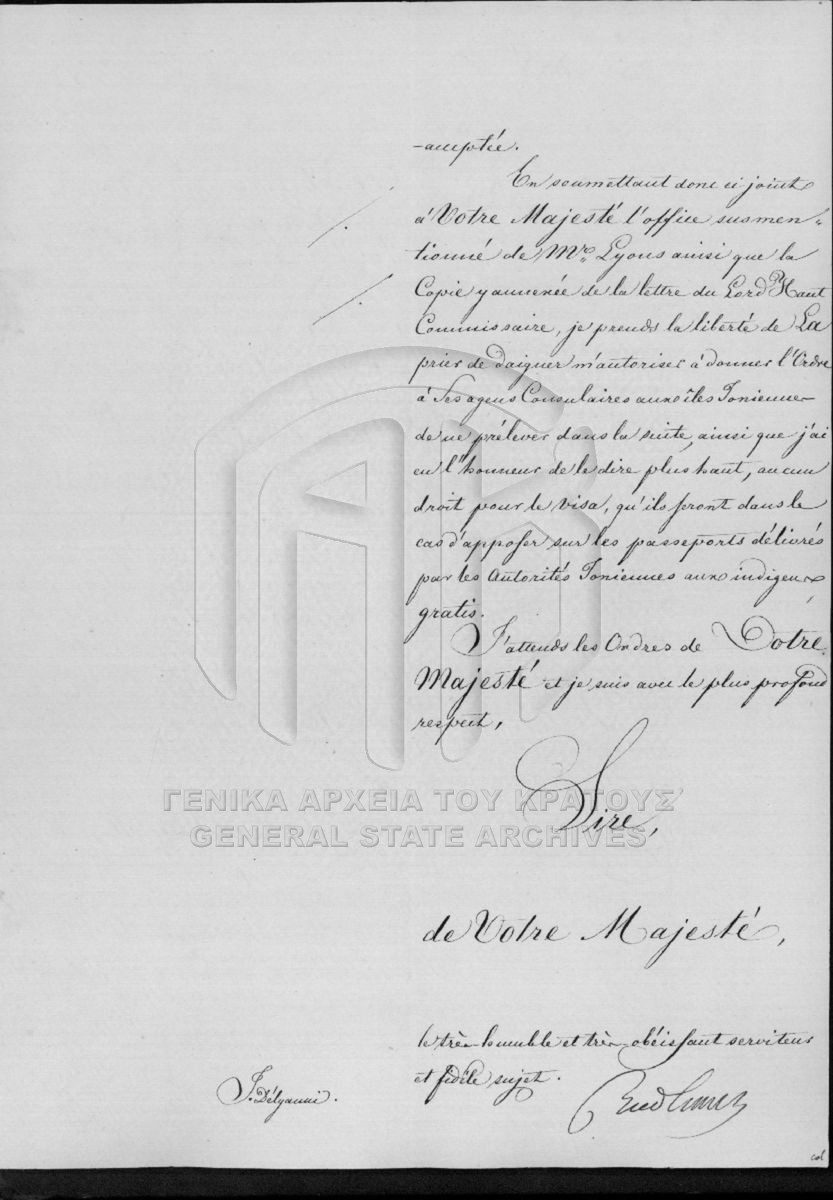 -ceptée.
En soumettant donc ci joint
à Votre Majesté l'office susmen-
tionné de Mr. Lyons ainsi que la
Copie y annexée de la lettre du Lord Haut
Commissaire, je prends la liberté de La
prier de daigner m'autoriser à donner l'Ordre
à Ses agens Consulaires aux îles Ioniennes
de ne prélever dans la suite, ainsi que j'ai
eu l'honneur de le dire plus haut, aucun
droit pour le visa, qu'ils seront dans le
cas d'apposer sur les passeports délivrés
par les Autorités Ioniennes aux indigens
gratis.
J'attends les Ordres de Votre
Majesté et je suis avec le plus profond
respect,
Sire,
de Votre Majesté,
le très humble et très obéissant serviteur
et fidèle sujet.
J. Délyanni.
ΓΕΝΙΚΑ ΑΡΧΕΙΑ ΤΟΥ ΚΡΑΤΟΥΣ
GENERAL STATE ARCHIVES